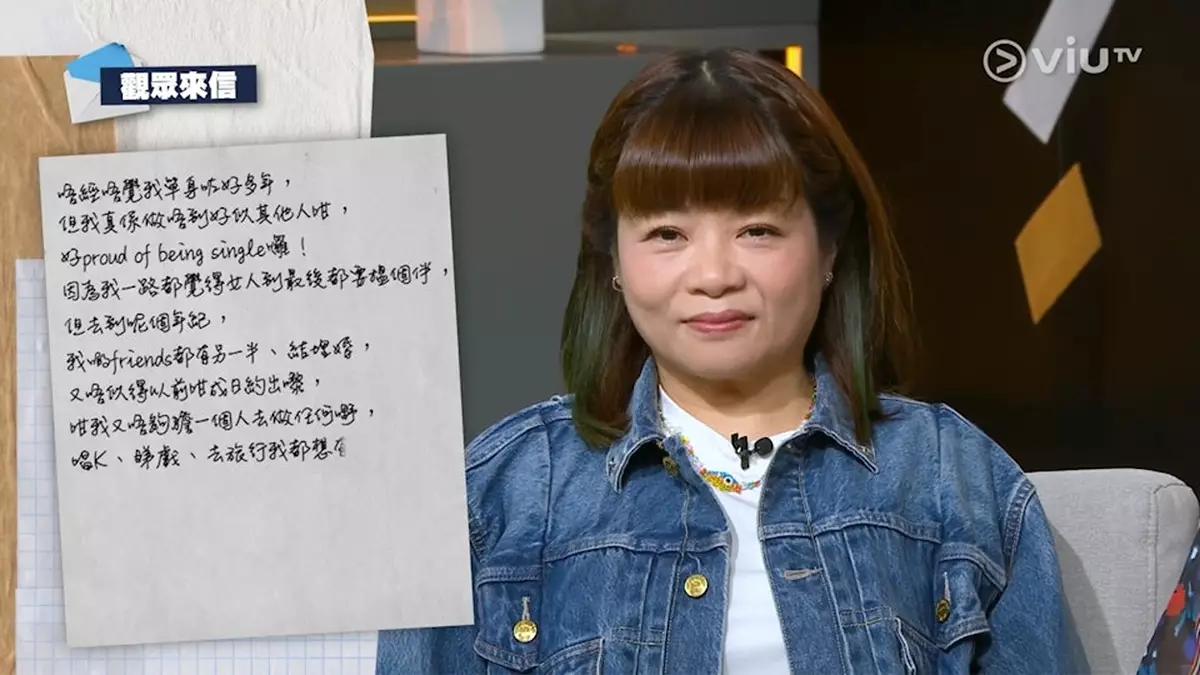 viuTV
觀眾來信
唔經唔覺我單身咗好多年，
但我真係做唔到好似其他人咁，
好proud of being single囉！
因為我一路都覺得女人到最後都要搵個伴，
但去到呢個年紀，
我啲friends都有另一半、結埋婚，
又唔似得以前咁成日約出嚟，
咁我又唔夠膽一個人去做任何嘢，
唱K、睇戲、去旅行我都想有